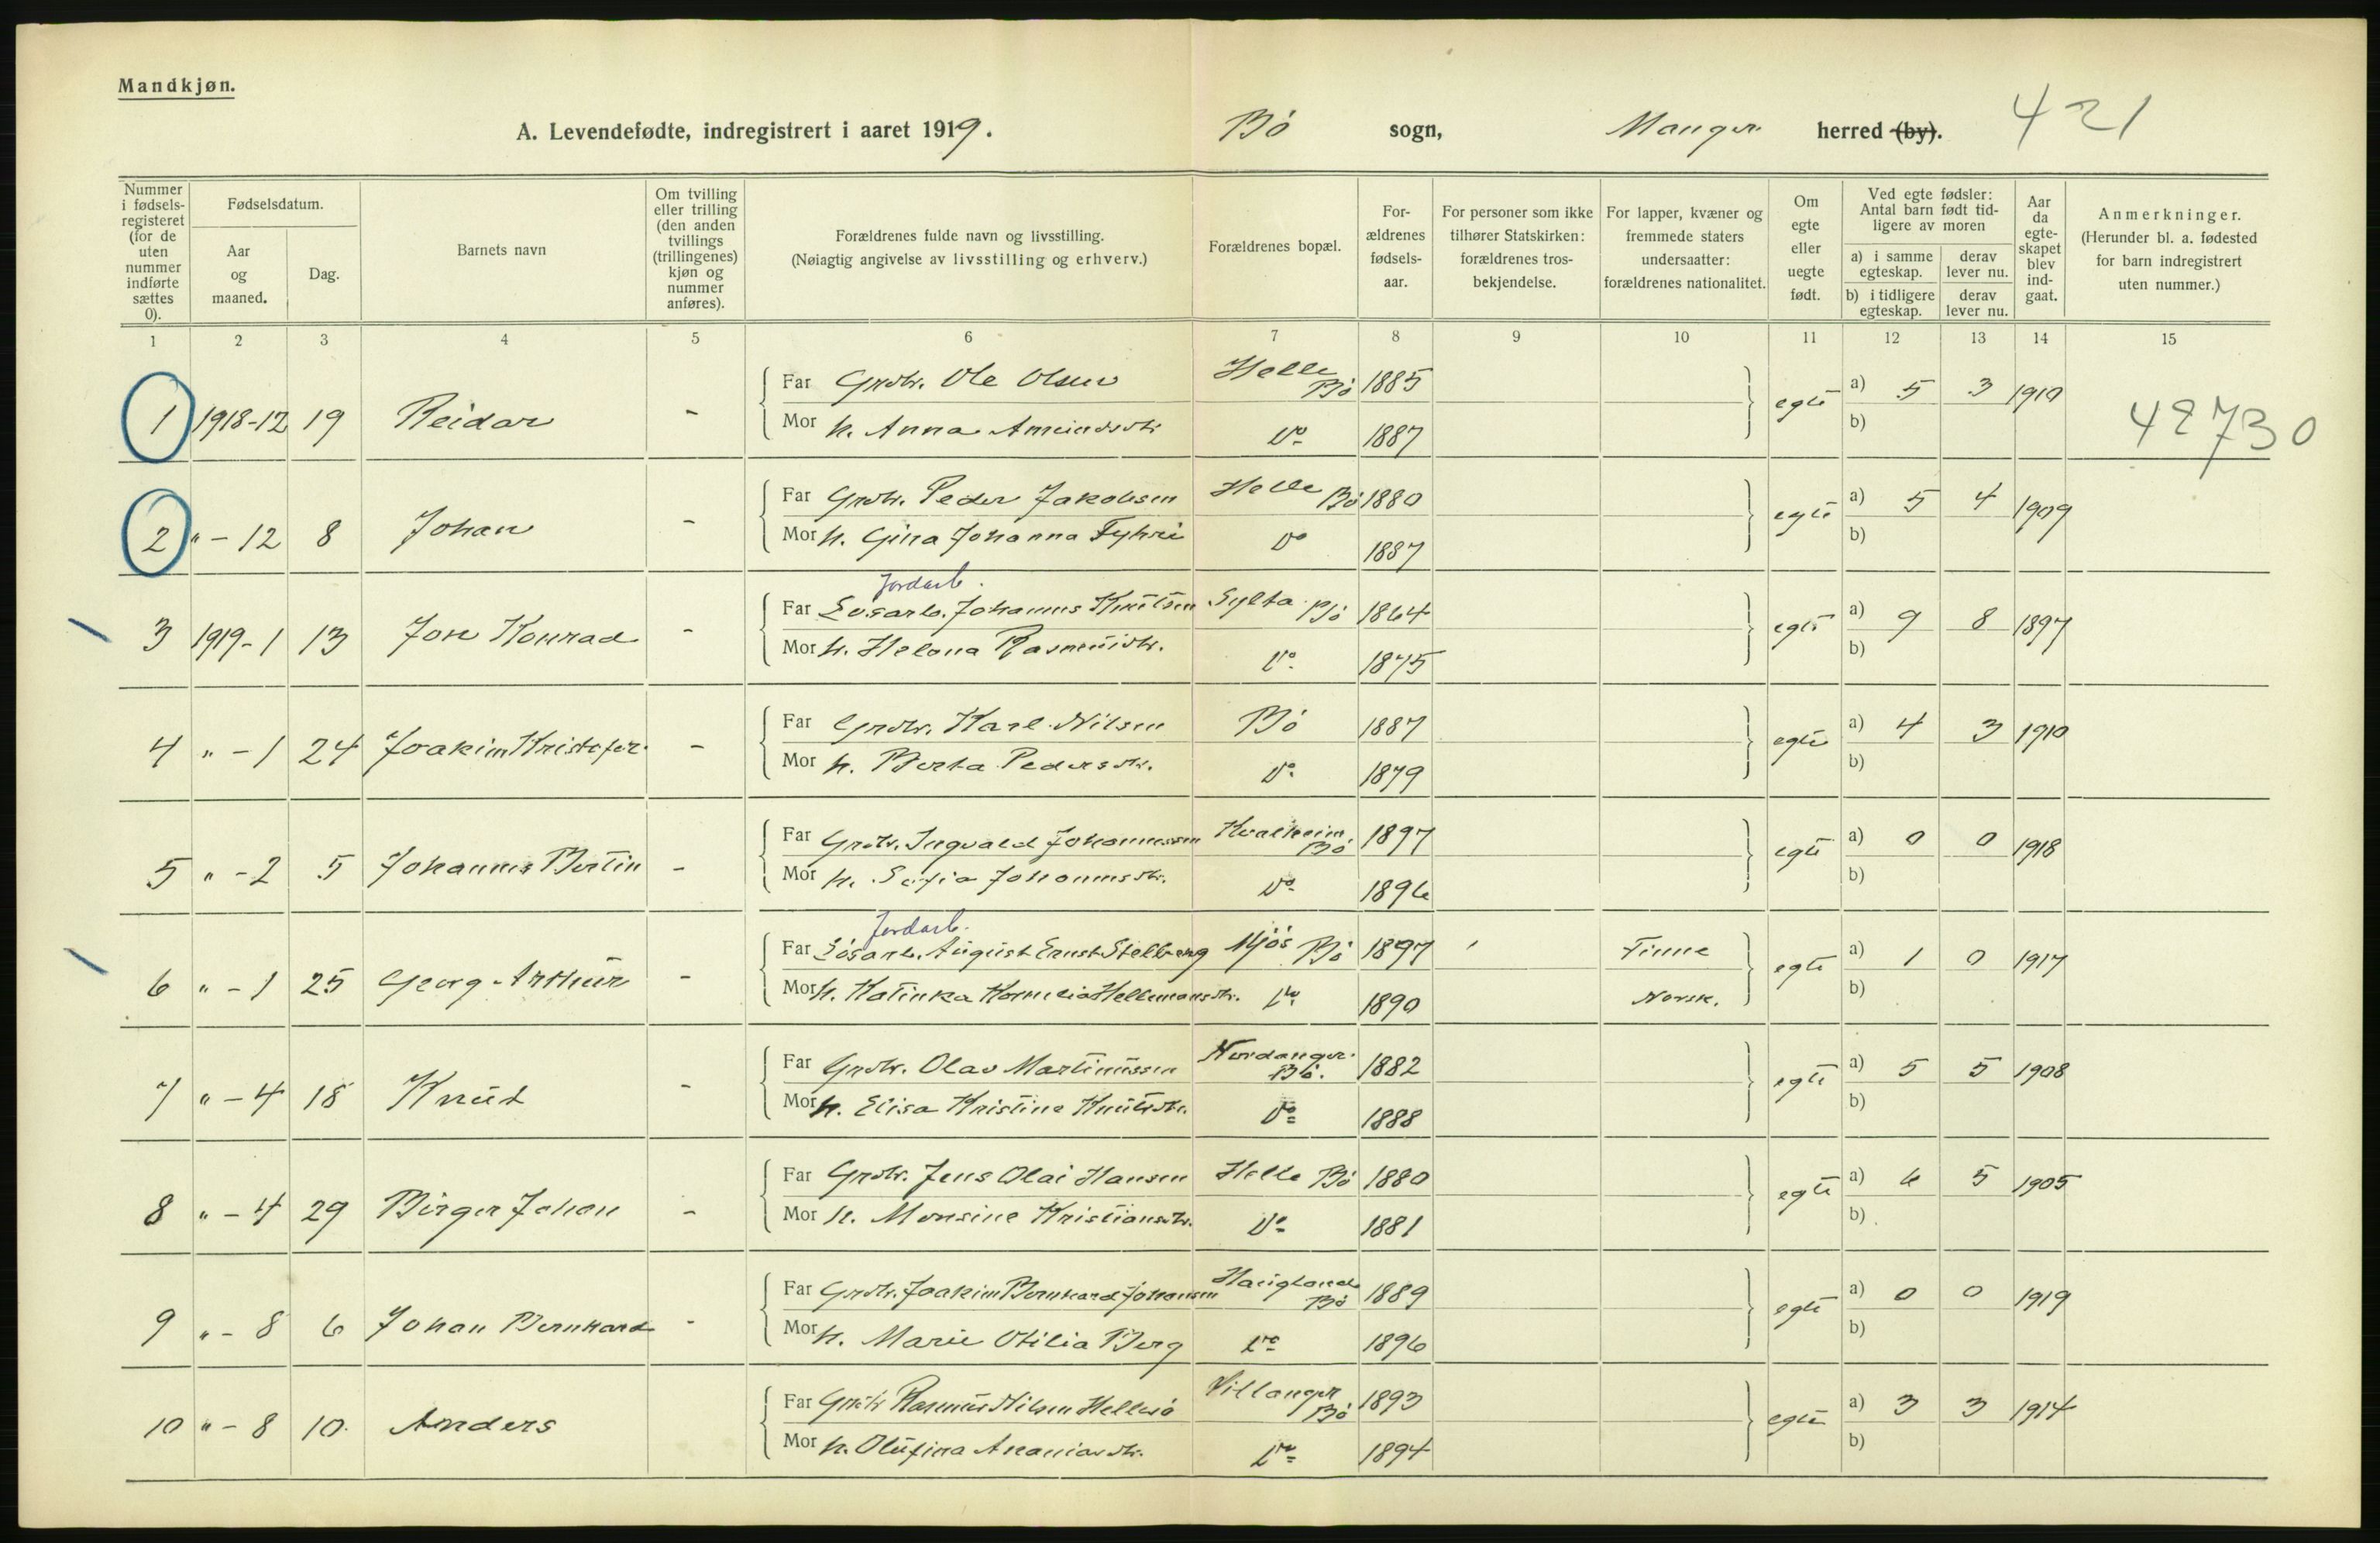 Mandkjøn.
A. Levendefødte, indregistrert i aaret 1919. Bø sogn, Manger herred (by). 421
Nummer i fødselsregisteret (for de uten nummer indførte sættes 0).
Fødselsdatum.
Aar og maaned.
Dag.
Barnets navn
Om tvilling eller trilling (den anden tvillings (trillingenes) kjøn og nummer anføres).
Forældrenes fulde navn og livsstilling.
(Nøiagtig angivelse av livsstilling og erhverv.)
Forældrenes bopæl.
Forældrenes fødselsaar.
For personer som ikke tilhører Statskirken: forældrenes trosbekjendelse.
For lapper, kvæner og fremmede staters undersaatter: forældrenes nationalitet.
Om egte eller uegte født.
Ved egte fødsler: Antal barn født tidligere av moren
a) i samme egteskap. derav lever nu.
b) i tidligere egteskap. derav lever nu.
Aar da egteskapet blev indgaat.
Anmerkninger.
(Herunder bl. a. fødested for barn indregistrert uten nummer.)
1 2 3 4 5 6 7 8 9 10 11 12 13 14 15
Far Grdbr. Ole Olsen Helle Bø 1885
1 1918-12 19 Reidar - egte a) 5 3 1910 42730
Mor h. Anna do 1887 b)
Far Grdbr. Peder Jakobsen Helle Bø 1880
2 " - 12 8 Johan - egte a) 5 4 1909
Mor h. Gina Johanna do 1887 b)
Jordarb.
Far Løsarb. Johannes Knutsen Sylta Bø 1864
3 1919-1 13 Jon Konrad - egte a) 9 8 1897
Mor h. Helena Rasmusdtr. do 1875 b)
Far Grdbr. Karl Nilsen Bø 1887
4 " - 1 24 Joakim Kristofer - egte a) 4 3 1910
Mor h. Berta Pedersdtr. do 1879 b)
Far Grdbr. Ingvald Johannessen Kvalheim Bø 1897
5 " - 2 5 Johannes Bertin - egte a) 0 0 1918
Mor h. Sofia Johannesdtr. do 1896 b)
Jordarb.
Far Løsarb. August Ernst Stellberg Mjøs Bø 1897 Finne
6 " - 1 25 Georg Arthur - egte a) 1 0 1917
Mor h. Katinka Kornelia Hellemansdtr. do 1890 Norsk. b)
Far Grdbr. Olav Martinussen Nordanger Bø. 1882
7 " - 4 18 Knut - egte a) 5 5 1908
Mor h. Elisa Kristine Knutsdtr. do 1888 b)
Far Grdbr. Jens Olai Hansen Helle Bø 1880
8 " - 4 29 Birger Johan - egte a) 6 5 1905
Mor h. Monsine Kristiansdtr. do 1881 b)
Far Grdbr. Joakim Bernhard Johansen Haugland Bø 1889
9 " - 8 6 Johan Bernhard - egte a) 0 0 1919
Mor h. Marie Otilia Berg do 1896 b)
Far Grdbr Rasmus Nilsen Hellesø Villanger Bø 1893
10 " - 8 10. Anders egte a) 3 3 1914
Mor h. Olufina Ananiasdtr. do 1894 b)